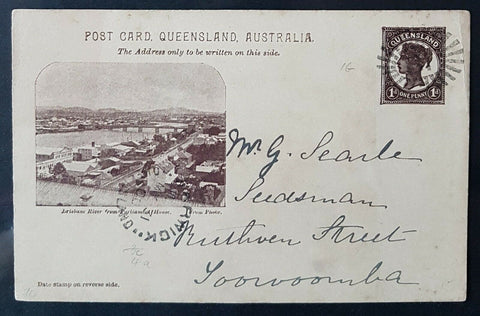 POST CARD, QUEENSLAND, AUSTRALIA.
The Address only to be written on this side.
QUEENSLAND
1d ONE PENNY 1d
Mr. G. Searle
Seedsman
Ruthven Street
Toowoomba
Brisbane River from Parliament House. From Photo.
WICK
QUEENSLAND
Date stamp on reverse side.